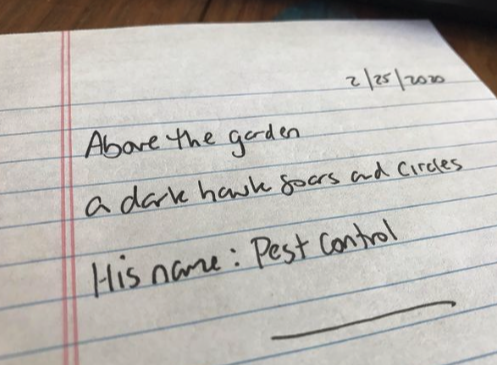 2/25/2020
Above the garden
a dark hawk soars and circles
His name: Pest Control